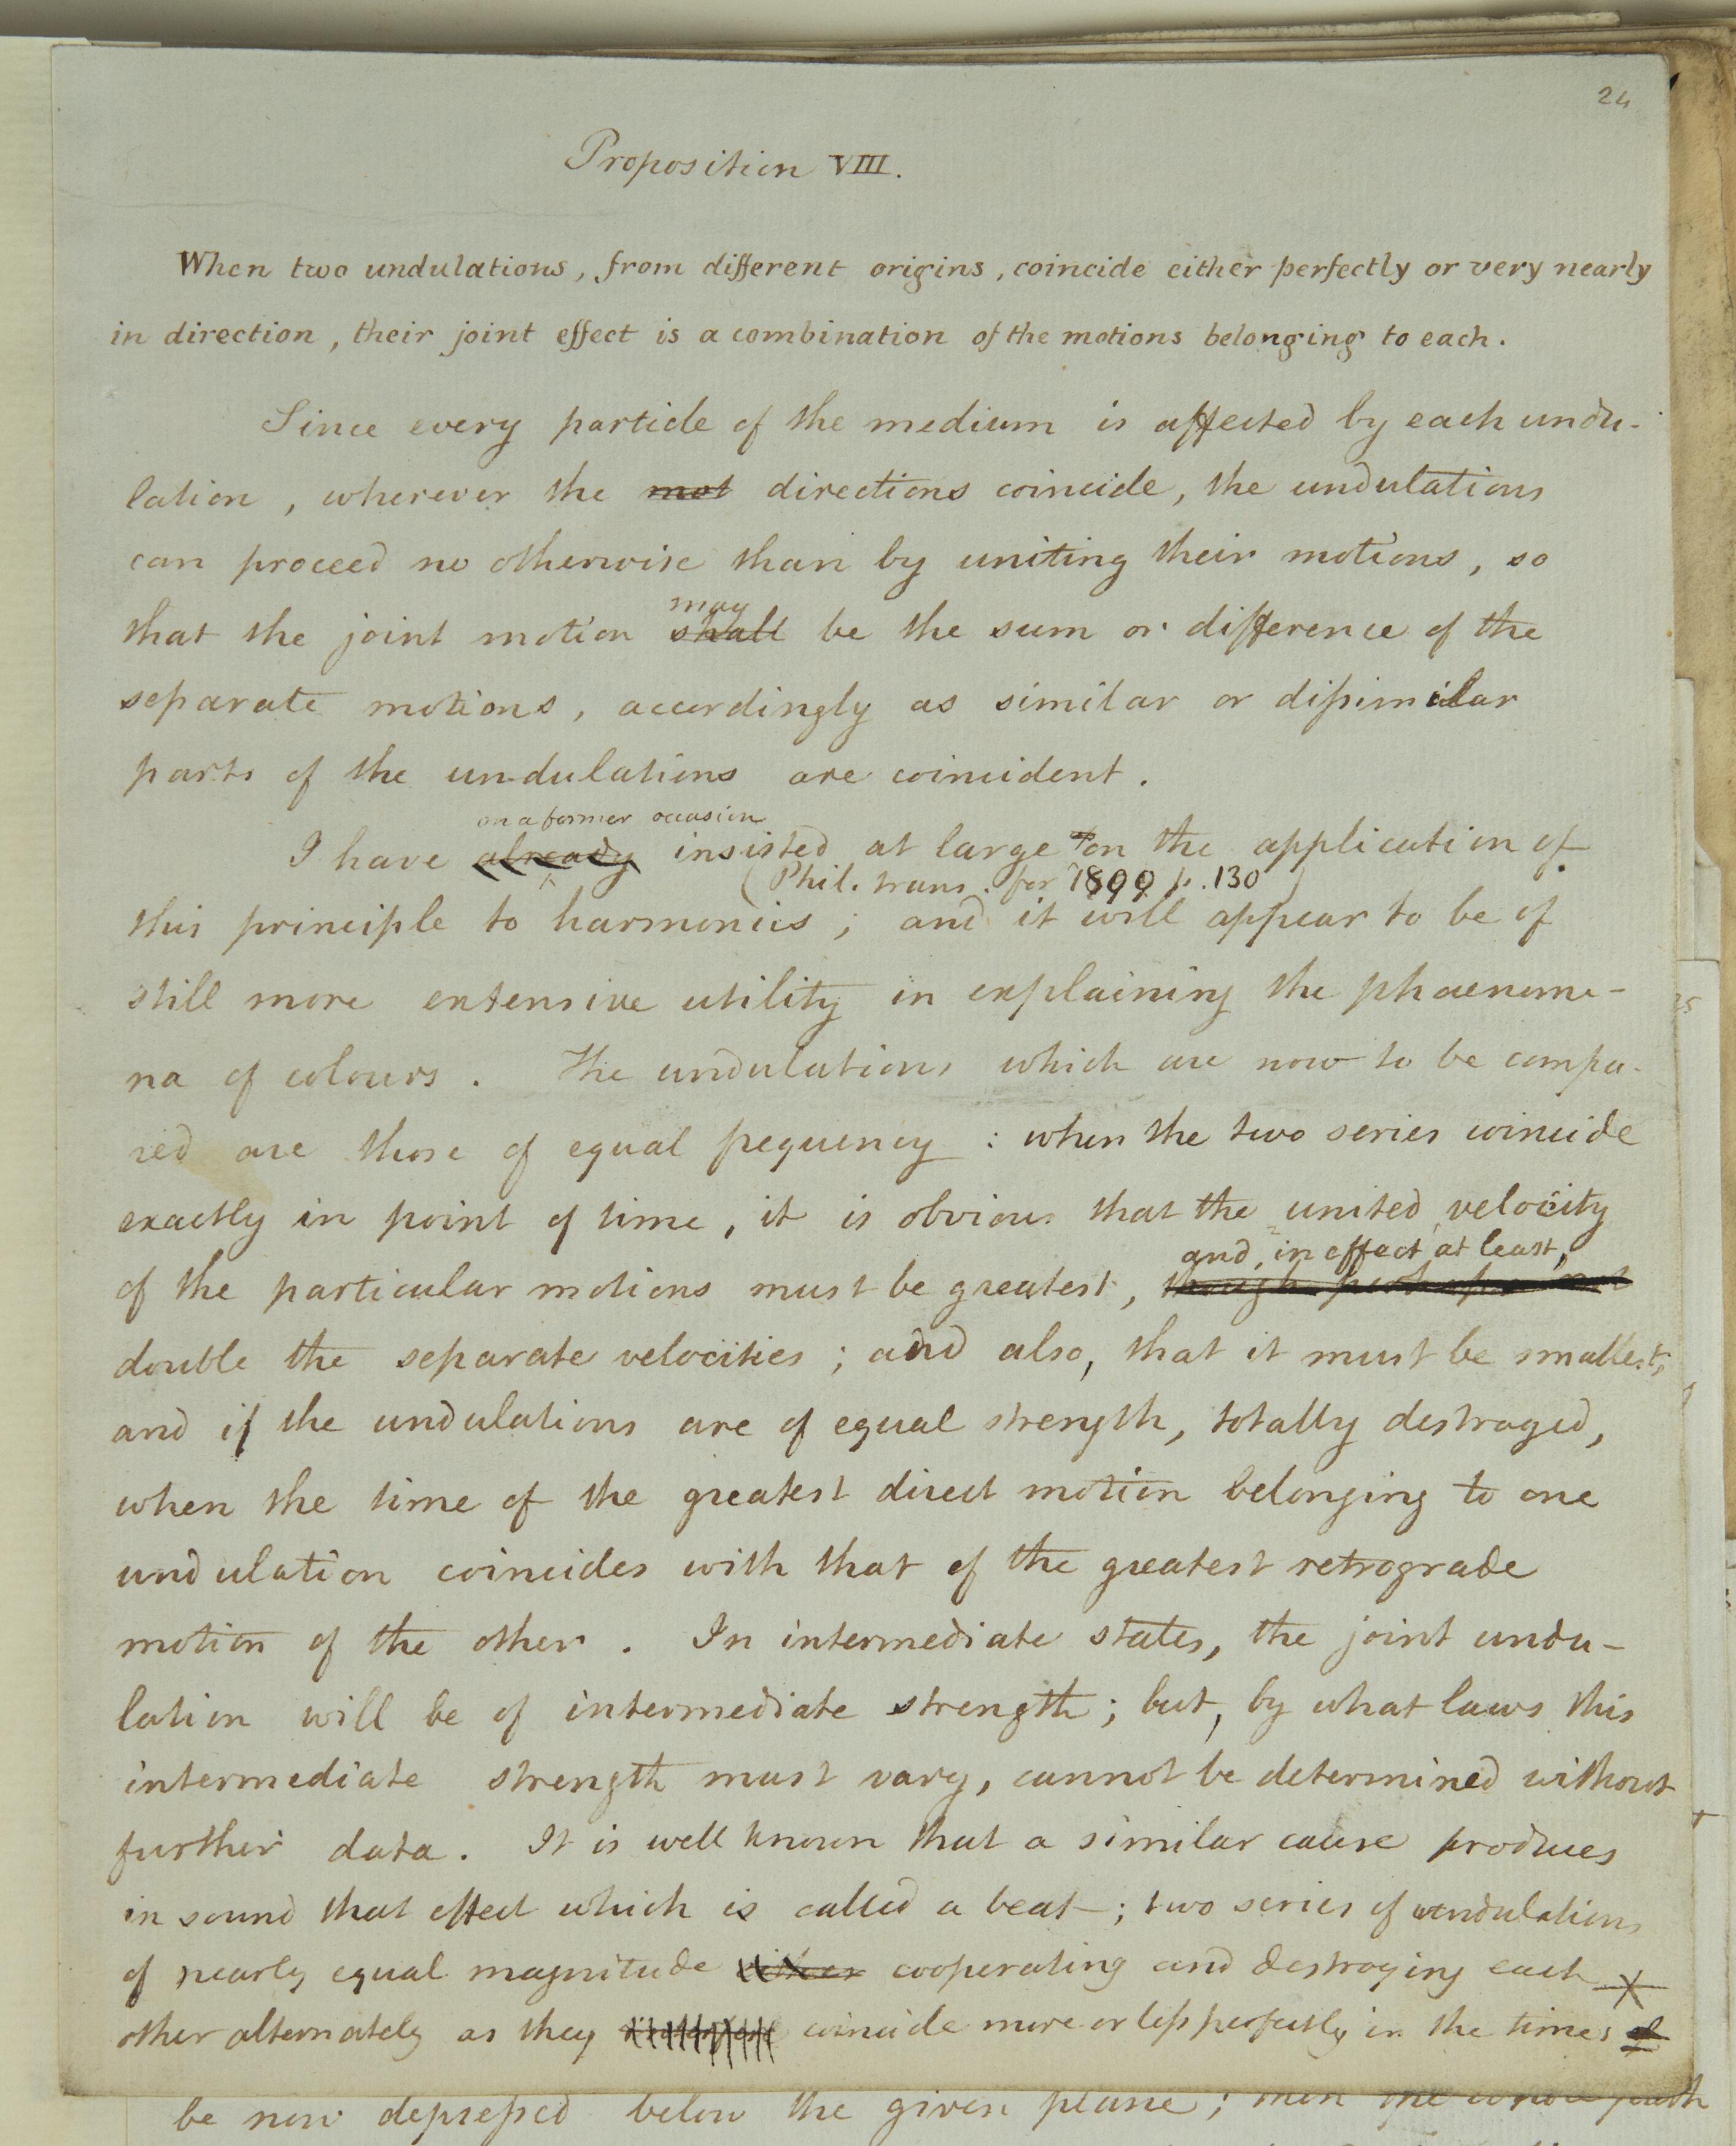 24
Proposition VIII.
When two undulations, from different origins, coincide either perfectly or very nearly
in direction, their joint effect is a combination of the motions belonging to each.
Since every particle of the medium is affected by each undu-
lation, wherever the mot directions coincide, the undulations
can proceed no otherwise than by uniting their motions, so
may
that the joint motion shall be the sum or difference of the
separate motions, accordingly as similar or dissimilar
parts of the undulations are coincident.
on a former occasion
I have already insisted at large on the application of
(Phil. trans. for 1800 p. 130)
this principle to harmonics; and it will appear to be of
still more extensive utility in explaining the phaenome-
na of colours. The undulations which are now to be compa-
red are those of equal frequency: when the two series coincide
exactly in point of time, it is obvious that the united velocity
and, in effect at least,
of the particular motions must be greatest, though perhaps not
double the separate velocities; and also, that it must be smallest,
and if the undulations are of equal strength, totally destroyed,
when the time of the greatest direct motion belonging to one
undulation coincides with that of the greatest retrograde
motion of the other. In intermediate states, the joint undu-
lation will be of intermediate strength; but, by what laws this
intermediate strength must vary, cannot be determined without
further data. It is well known that a similar cause produces
in sound that effect which is called a beat; two series of undulations
of nearly equal magnitude cooperating and destroying each
other alternately as they coincide more or less perfectly in the times of
be now depressed below the given plane; then the whole path